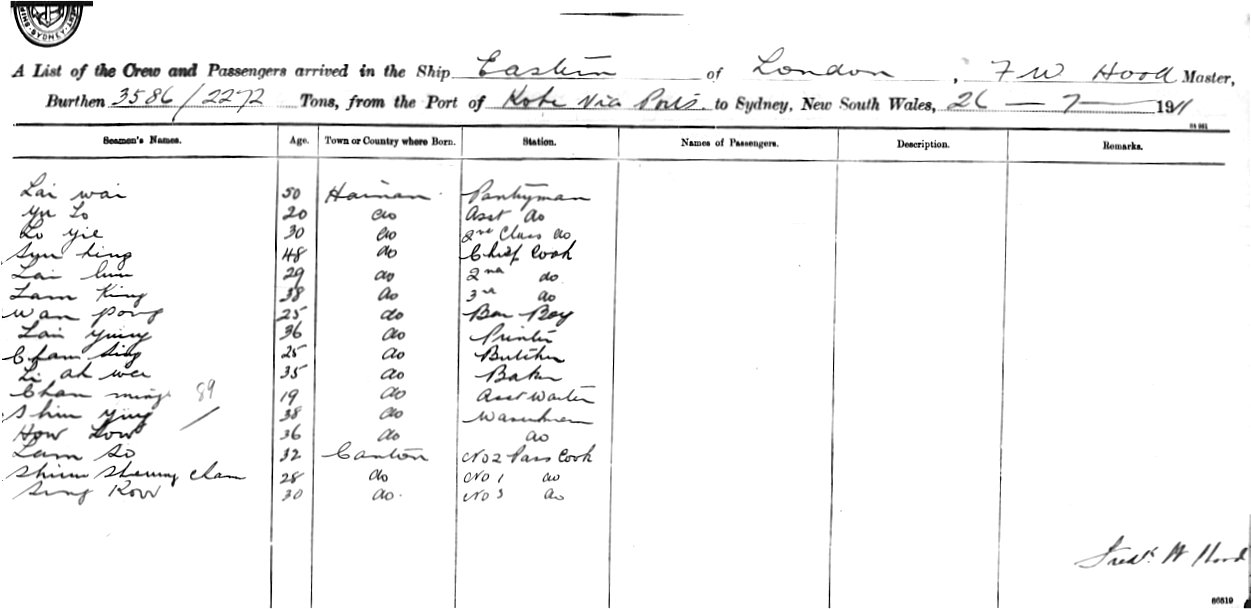 SYDNEY
A List of the Crew and Passengers arrived in the Ship Eastern of London, F W Hood Master,
Burthen 3586/2272 Tons, from the Port of Kobe Via Ports to Sydney, New South Wales, 26 – 7 – 1911
Seamen's Names. Age. Town or Country where Born. Station. Names of Passengers. Description. Remarks.
Lai wai 50 Hainan Pantryman
Yu Lo 20 do Asst do
Lo yie 30 do 2nd Class do
48 do Chief Cook
Lai 29 do 2nd do
Lam King 38 do 3rd do
Wan pong 25 do Bar Boy
Lai Ying 36 do Printer
Cham Sing 25 do Butcher
Li ah wei 35 do Baker
Chan ming 89 19 do Asst Waiter
Shiu Ying 38 do
How Low 36 do do
Lam So 32 Canton No 2 Pass Cook
Cham 28 do No 1 do
Sing Kow 30 do. No 3 do
Fredk W Hood
86519